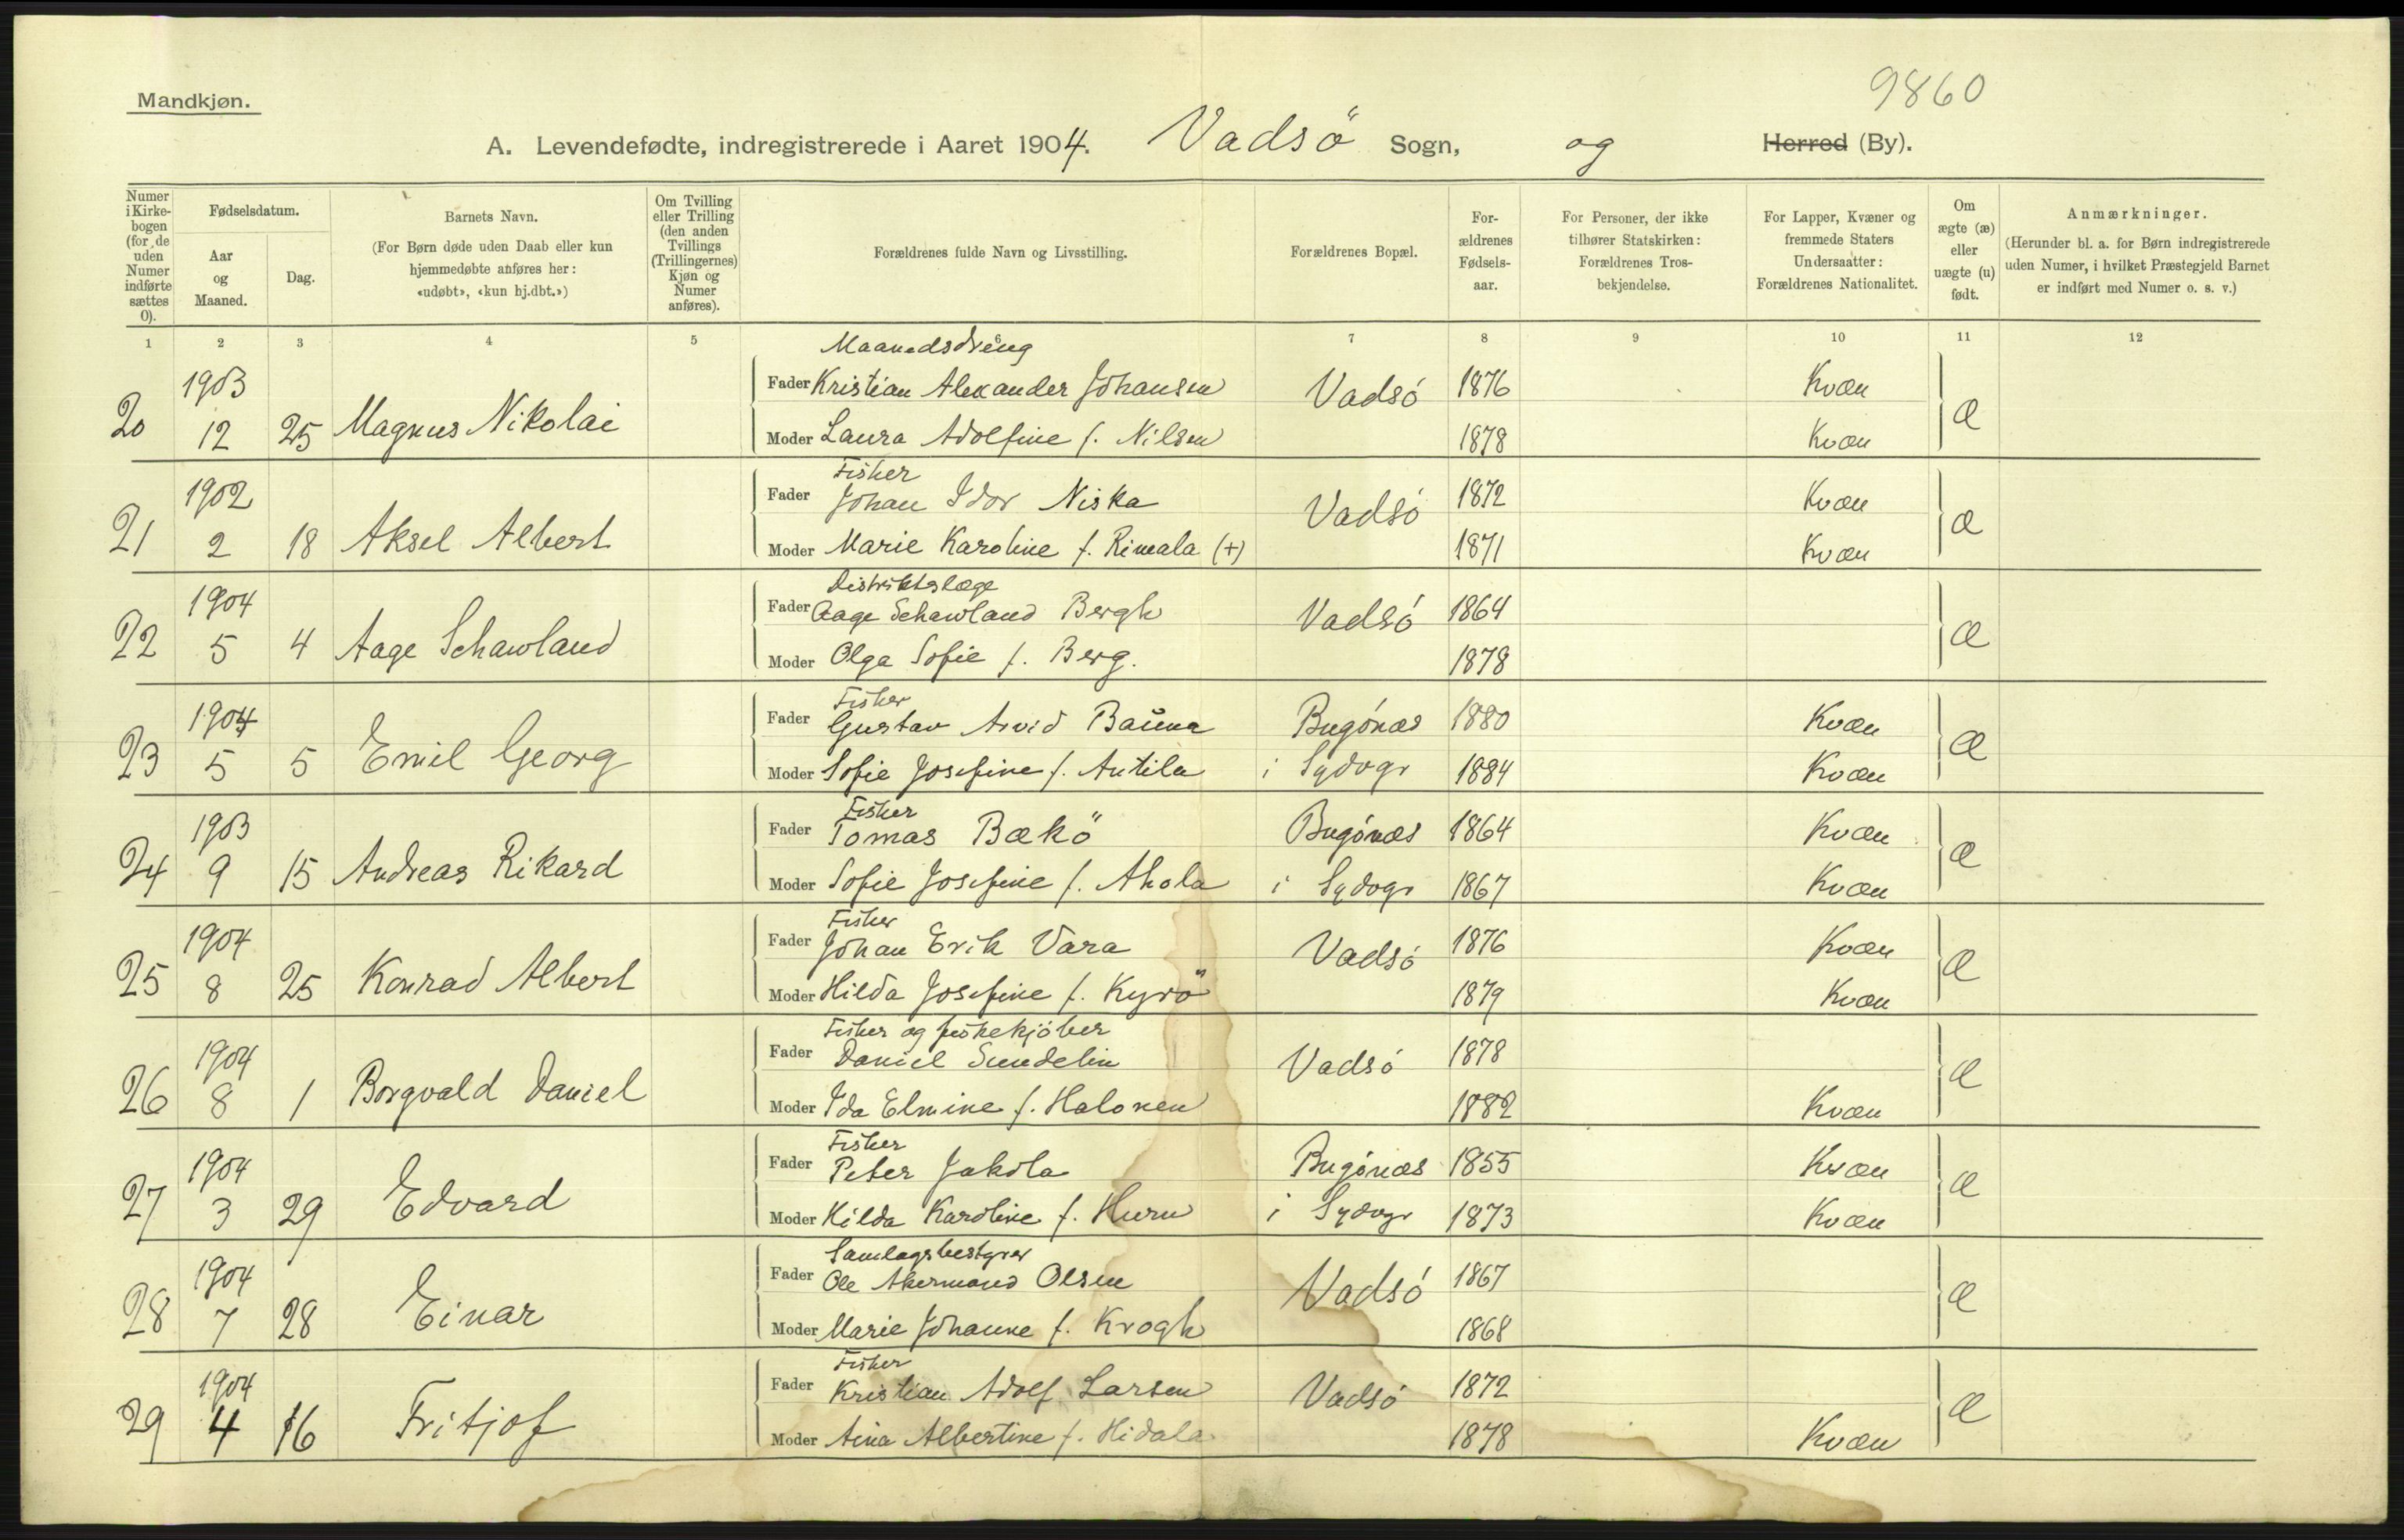 9860
Mandkjøn.
A. Levendefødte, indregistrerede i Aaret 1904. Vadsö Sogn, og Herred (By).
Numer i Kirkebogen (for de uden Numer indførte sættes 0).
Fødselsdatum.
Aar og Maaned.
Dag.
Barnets Navn.
(For Børn døde uden Daab eller kun hjemmedøbte anføres her: «udøbt», «kun hj.dbt.»)
Om Tvilling eller Trilling (den anden Tvillings (Trillingernes) Kjøn og Numer anføres).
Forældrenes fulde Navn og Livsstilling.
Forældrenes Bopæl.
Forældrenes Fødselsaar.
For Personer, der ikke tilhører Statskirken: Forældrenes Trosbekjendelse.
For Lapper, Kvæner og fremmede Staters Undersaatter: Forældrenes Nationalitet.
Om ægte (æ) eller uægte (u) født.
Anmærkninger.
(Herunder bl. a. for Børn indregistrerede uden Numer, i hvilket Præstegjeld Barnet er indført med Numer o. s. v.)
1 2 3 4 5 7 8 9 10 11 12
Maanedsdreng
1903 Fader Kristian Alexander Johansen Vadsó 1876 Kvæn
20 12 25 Magnus Nikolai Moder Laura Adolfine f. Nilsen 1878 Kvæn æ
Fisker
1902 Fader Johan Idor Niska Vadsó 1872 Kvæn
21 2 18 Aksel Albert Moder Marie Karoline f. Rimala (+) 1871 Kvæn æ
Distriktslæge
1904 Fader Aage Schawland Bergh Vadsó 1864
22 5 4 Aage Schawland Moder Olga Sofie f. Berg. 1878 æ
Fisker
1904 Fader Gustav Arvid Bauna Bugónæs 1880 Kvæn
23 5 5 Emil Georg Moder Sofie Josefine f. Antila i Sydvgr 1884 Kvæn æ
Fisker
1903 Fader Tomas Bækö Bugónæs 1864 Kvæn
24 9 15 Andreas Rikard Moder Sofie Josefine f. Ahola i Sydvgr 1867 Kvæn æ
Fisker
1904 Fader Johan Erik Vara Vadsó 1876 Kvæn
25 8 25 Konrad Albert Moder Hilda Josefine f. Kyrö 1879 Kvæn æ
Fisker og fiskekjóber
1904 Fader Daniel Sundelin Vadsó 1878
26 8 1 Borgvald Daniel Moder Ida Elmine f. Halonen 1882 Kvæn æ
Fisker
1904 Fader Peter Jakola Bugónæs 1855 Kvæn
27 3 29 Edvard Moder Hilda Karoline f. Huru i Sydvgr 1873 Kvæn æ
Samlagsbestyrer
1904 Fader Ole Akermand Olsen Vadsó 1867
28 7 28 Einar Moder Marie Johanne f. Krogh 1868 æ
Fisker
1904 Fader Kristian Adolf Larsen Vadsó 1872
29 4 16 Fritjof Moder Aina Albertine f. Hidala 1878 Kvæn æ